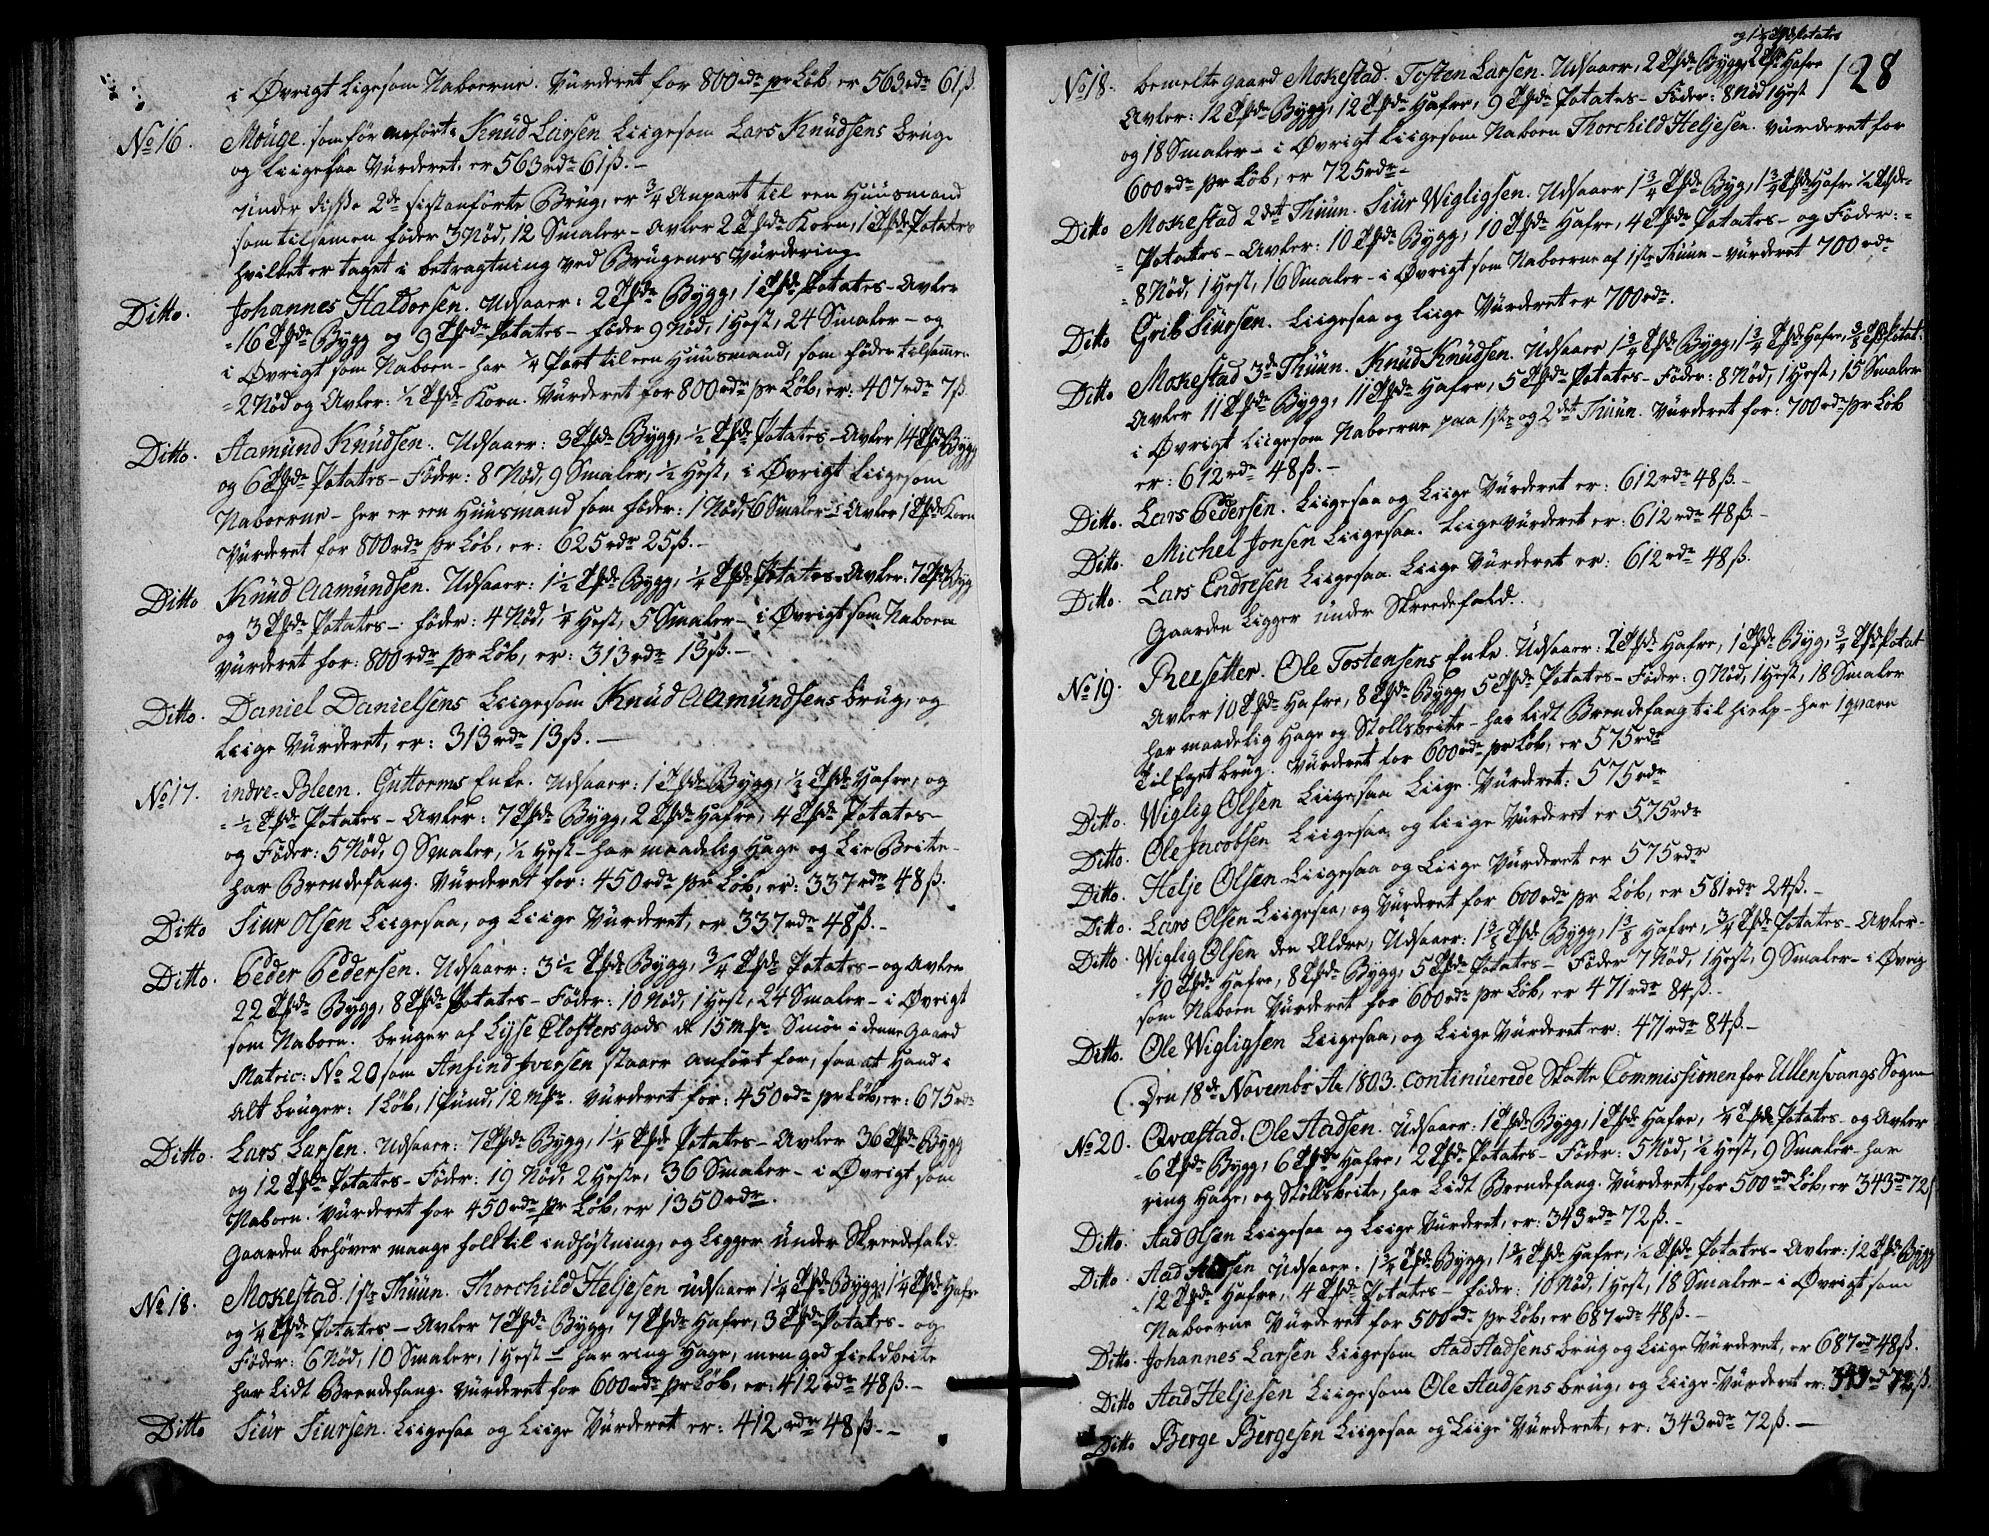 i Øvrigt ligesom Naboerne. Vürderet for 800 rdr pr Løb, er 563 rdr 61 ß.
No 16. Mouge. som før anførte Knüd Larsen Liigesom Lars Knüdsens brug
og Liigesaa Vürderet, er 563 rdr 61 ß. –
Under disse 2de sistanførte Brüg, er 3/4 Anpart til een Huusmand
som tilsamen føder 3 Nød, 12 Smaler – Avler 2 Tde Korn, 1 Tde Potates
hvilket er taget i betragtning ved Brügenes Vürdering
Ditto. Johannes Haldorsen. Udsaaer: 2 Tdr Bygg, 1 Tde Potates – Avler
16 Tdr Bygg og 9 Tdr Potates – føder 9 Nød, 1 Hest, 24 Smaler – og
i Øvrigt som Naboen – har 1/4 Part til een Huusmand, som føder tilsammen
2 Nød og Avler: 1/2 Tde Korn. Vürderet for 800 rdr pr Løb, er: 407 rdr 7 ß.
Ditto. Aamund Knüdsen. Udsaaer: 3 Tdr Bygg, 1/2 Tde Potates – Avler 14 Tdr Bygg
og 6 Tdr Potates – Føder: 8 Nød, 9 Smaler, 1/2 Hest, i Øvrigt Liigesom
Naboerne – her er een Huusmand som føder: 1 Nød, 6 Smaler – Avler 1 Tde Korn
Vürderet for 800 rdr pr Løb, er: 625 rdr 25 ß. –
Ditto Knüd Aamundsen. Udsaaer: 1 1/2 Tde Bygg, 1/4 Tde Potates – Avler: 7 Tdr Byg
og 3 Tdr Potates – føder: 4 Nød, 1/4 Hest, 5 Smaler – i Øvrigt som Naboen
vürderet for: 800 rdr pr Løb, er: 313 rdr 13 ß. –
Ditto. Daniel Danielsens Liigesom Knüd Aamundsens brüg, og
Liige Vürderet, er: 313 rdr 13 ß. –
No 17. indre-Bleen. Guttorms Enke. Udsaaer: 1 Tde Bygg, 1/2 Tde Hafre, og
1/2 Tde Potates – Avler: 7 Tdr Bygg, 2 Tdr Hafre, 4 Tdr Potates –
og Føder: 5 Nød, 9 Smaler, 1/2 Hest – har maadelig Hage og Lie Beite –
har Brendefang. Vürderet for: 450 rdr pr Løb, er: 337 rdr 48 ß.
Ditto Siur Olsen Liigesaa, og Liige Vürderet, er 337 rdr 48 ß. –
Ditto. Peder Pedersen. Udsaaer: 3 1/2 Tde Bygg, 3/4 Tde Potates – og Avler
22 Tdr Bygg, 8 Tdr Potates – Føder: 10 Nød, 1 Hest, 24 Smaler – i Øvrigt
som Naboen. brüger af Lysse Closters gods de 15 Mkr Smør i denne Gaard
Matric: No 20 som Anfind Iversen staaer anført for, saa at Hand i
Alt brüger: 1 Løb, 1 Pund, 12 Mkr. vürderet for: 450 rdr pr Løb, er: 675 rdr
Ditto. Lars Larsen. Udsaaer: 7 Tdr Bygg, 1 1/4 Tde Potates – Avler 36 Tdr Bygg
og 12 Tdr Potates – Føder: 19 Nød, 2 Heste, 36 Smaler – i Øvrigt som
Naboen. Vürderet for 450 rdr pr Løb, er 1350 rdr.
Gaarden behøver mange folk til indhøstning, og Ligger ünder Skreedefald.
No 18. Mokestad. 1ste Thüün. Thorchild Heljesen udsaaer 1 1/4 Tde Bygg, 1 1/4 Tde Hafre
og 1/4 Tde Potates – Avler 7 Tdr Bygg, 7 Tdr Hafre, 3 Tdr Potates – og
Føder: 6 Nød, 10 Smaler, 1 Hest – har ring Hage, men god fieldbeite
har Lidt Brendefang. Vürderet for 600 rdr pr Løb, er: 412 rdr 48 ß. –
Ditto Siür Siursen. Liigesaa og Liige Vürderet er: 412 rdr 48 ß. –
128
og 1/2 Tde Potates
No 18. bemelte gaard Mokestad. Tosten Larsen. Udsaaer, 2 Tdr Bygg, 2 Tdr Hafre
Avler: 12 Tdr Bygg, 12 Tdr Hafre, 9 Tdr Potates – Føder: 8 Nød 1 Hest
og 18 Smaler – i Øvrigt Liigesom Naboen Thorchild Heljesen. Vürderet for
600 rdr pr Løb, er 725 rdr –
Ditto Mokestad 2det Thüün. Siur Wigligsen. Udsaaer 1 3/4 Tde Byg, 1 3/4 Tde Hafre 1/2 Tde
Potates – Avler: 10 Tdr Bygg, 10 Tdr Hafre, 4 Tdr Potates – og Føder:
8 Nød, 1 Hest, 16 Smaler – i Øvrigt som Naboerne af 1ste Thüün – vürderet 700 rdr
Ditto Grib Siursen. Liigesaa og Liige Vürderet er 700 rdr.
Ditto Mokestad 3de Thüün. Knüd Knüdsen. Udsaaer 1 3/4 Tde Bygg, 1 3/4 Tde Hafre, 3/8 Tde Potat:
Avler 11 Tdr Bygg, 11 Tdr Hafre, 5 Tdr Potates – Føder: 8 Nød, 1 Hest, 15 Smaler
i Øvrigt Liigesom Naboerne paa 1ste og 2det Thüün. Vürderet for: 700 rdr pr Løb
er: 612 rdr 48 ß. –
Ditto. Lars Pedersen. Liigesaa og Liige Vürderet er: 612 rdr 48 ß. –
Ditto. Michel Jonsen Liigesaa. Liige vürderet er: 612 rdr 48 ß –
Ditto. Lars Endresen Liigesaa. Liige Vürderet er: 612 rdr 48 ß.
Gaarden Ligger ünder Skreedefald.
No 19. Reesetter. Ole Tostensens Enke. Udsaaer: 2 Tdr Hafre, 1 Tde Byg, 3/4 Tde Potat
Avler 10 Tdr Hafre, 8 Tdr Bygg, 5 Tdr Potates – Føder: 9 Nød, 1 Hest, 18 Smaler
har maadelig Hage og Støllsbeite – har Lidt Brendefang til hielp – har 1 qværn
til Eget brüg. Vürderet for 600 rdr pr Løb, er 575 rdr
Ditto. Wiglig Olsen Liigesaa Liige Vürderet: 575 rdr
Ditto. Ole Jacobsen Liigesaa, og Liige Vürderet er 575 rdr
Ditto. Helje Olsen Liigesaa og Liige Vürderet er 575 rdr
Ditto. Lars Olsen Liigesaa, og Vürderet for 600 rdr pr Løb, er 581 rdr 24 ß. –
Ditto. Wiglig Olsen den Ældre, Udsaaer: 1 3/8 Tde Bygg, 1 3/8 Hafre, 3/4 Tde Potates – Avler –
10 Tdr Hafre, 8 Tdr Bygg, 5 Tdr Potates – Føder 7 Nød, 1 Hest, 9 Smaler – i Øvrig
som Naboen Vürderet for 600 rdr pr Løb, er 471 rdr 84 ß. –
Ditto. Ole Wigligsen Liigesaa, og Liige Vürderet er: 471 rdr 84 ß. –
Den 18de Novembr Ao 1803. continuerede Skatte Commissionen for Ullensvangs Sogn
No 20. Qvæstad. Ole Aadsen. Udsaaer: 1 Tde Bygg, 1 Tde Hafre, 1/4 Tde Potates – og Avler
6 Tdr Bygg, 6 Tdr Hafre, 2 Tdr Potates – Føder: 5 Nød, 1/2 Hest, 9 Smaler – har
ring Hage, og Støllsbeite, har Lidt Brendefang. Vürderet, for 500 rdr Løb, er 343 rdr 72 ß
Ditto. Aad Olsen Liigesaa og Liige Vürderet, er: 343 rdr 72 ß. –
Ditto. Aad Aadsen Udsaaer: 1 3/4 Tde Bygg, 1 3/4 Tde Hafre, 1/2 Tde Potates – Avler: 12 Tdr Bygg
12 Tdr Hafre, 4 Tdr Potates – føder: 10 Nød, 1 Hest, 18 Smaler – i Øvrigt som
Naboerne Vürderet for 500 rdr pr Løb, er 687 rdr 48 ß. –
Ditto. Johannes Larsen Liigesom Aad Aadsens brüg og Liige Vürderet, er 687 rdr 48 ß.
Ditto Aad Heljesen Liigesom Ole Aadsens brüg, og Liige Vürderet er: 343 rdr 72 ß.
Ditto Berge Bergesen Liigesaa og Liige Vürderet, er: 343 rdr 72 ß. –